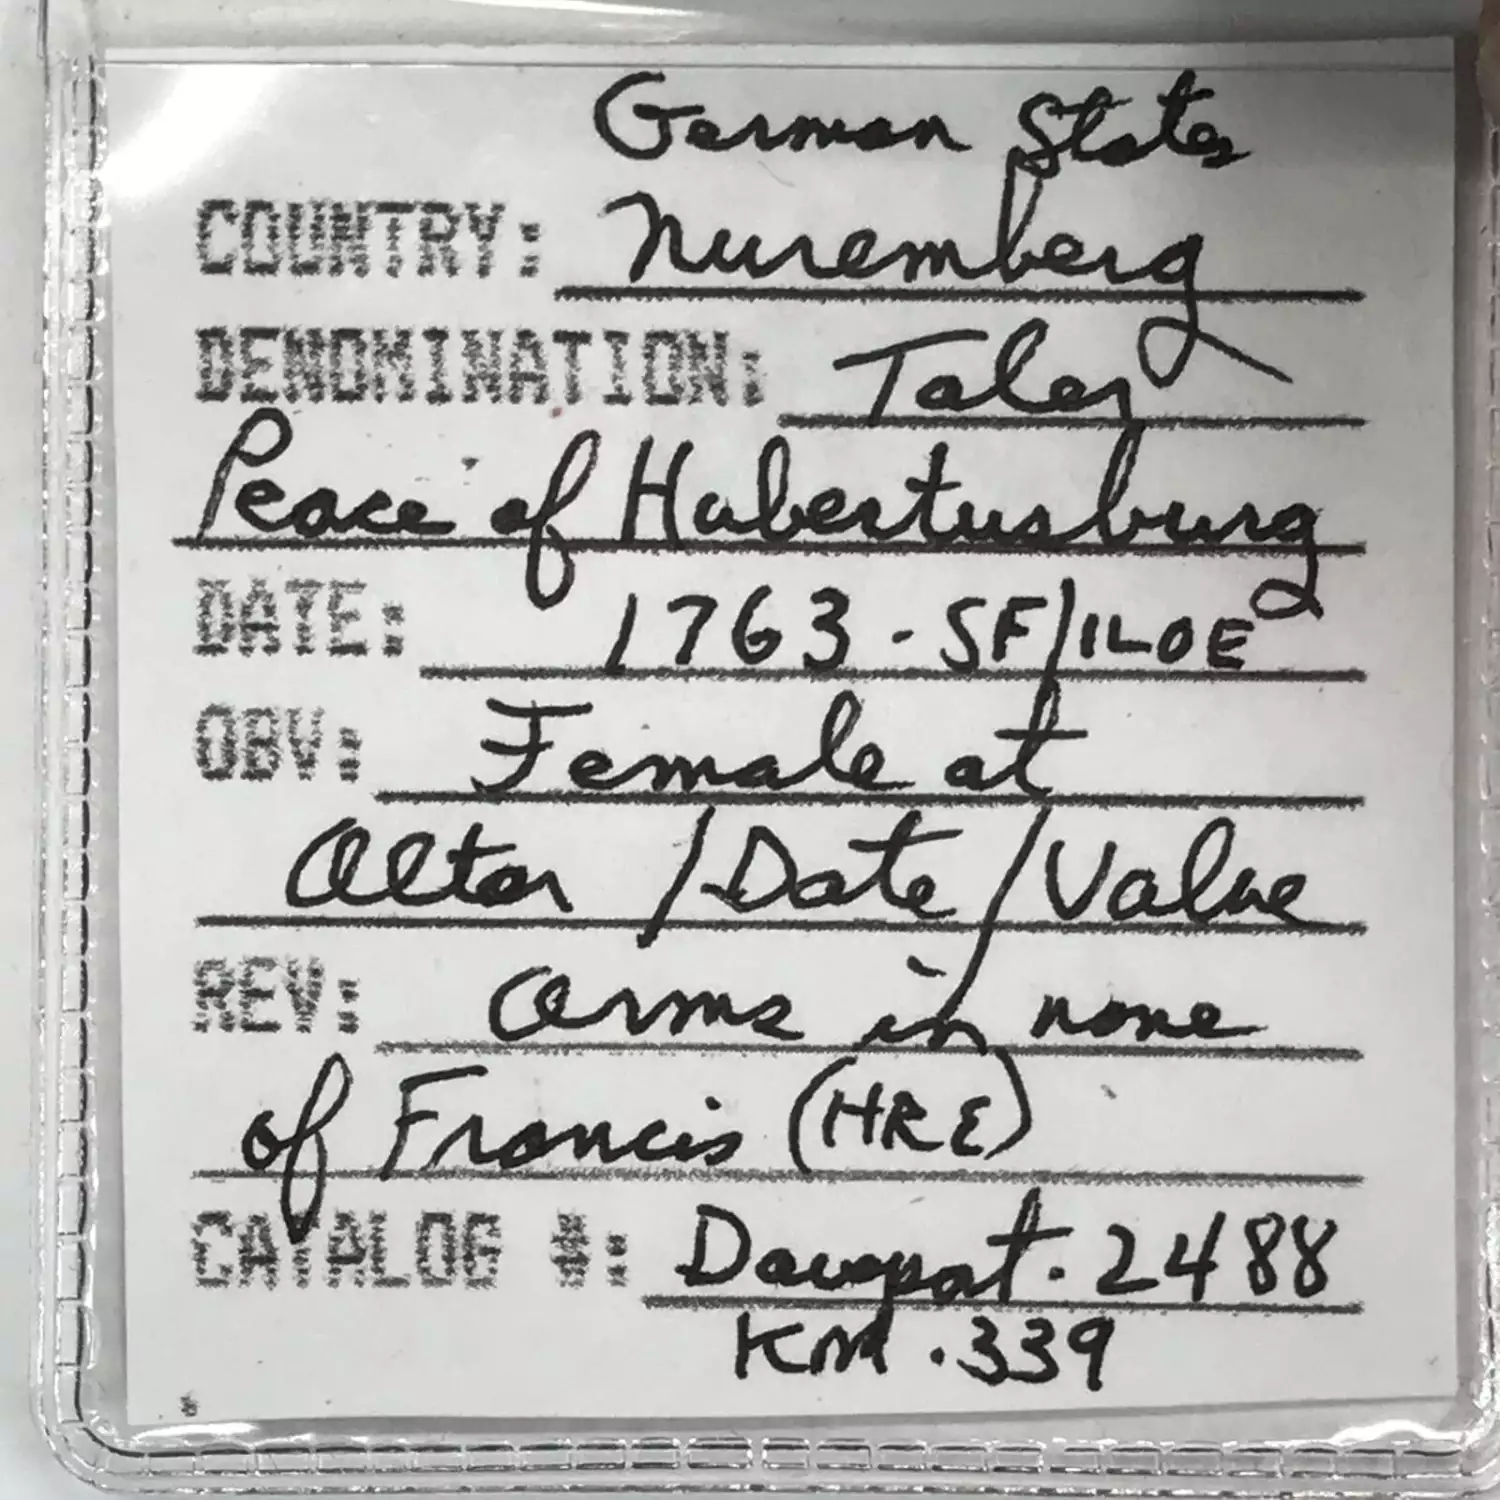 German States
COUNTRY: Nuremberg
DENOMINATION: Taler
Peace of Hubertusburg
DATE: 1763 - SF/ILOE
OBV: Female at
Altar / Date / Value
REV: Arms in name
of Francis (HRE)
CATALOG #: Davnpat. 2488
KM . 339